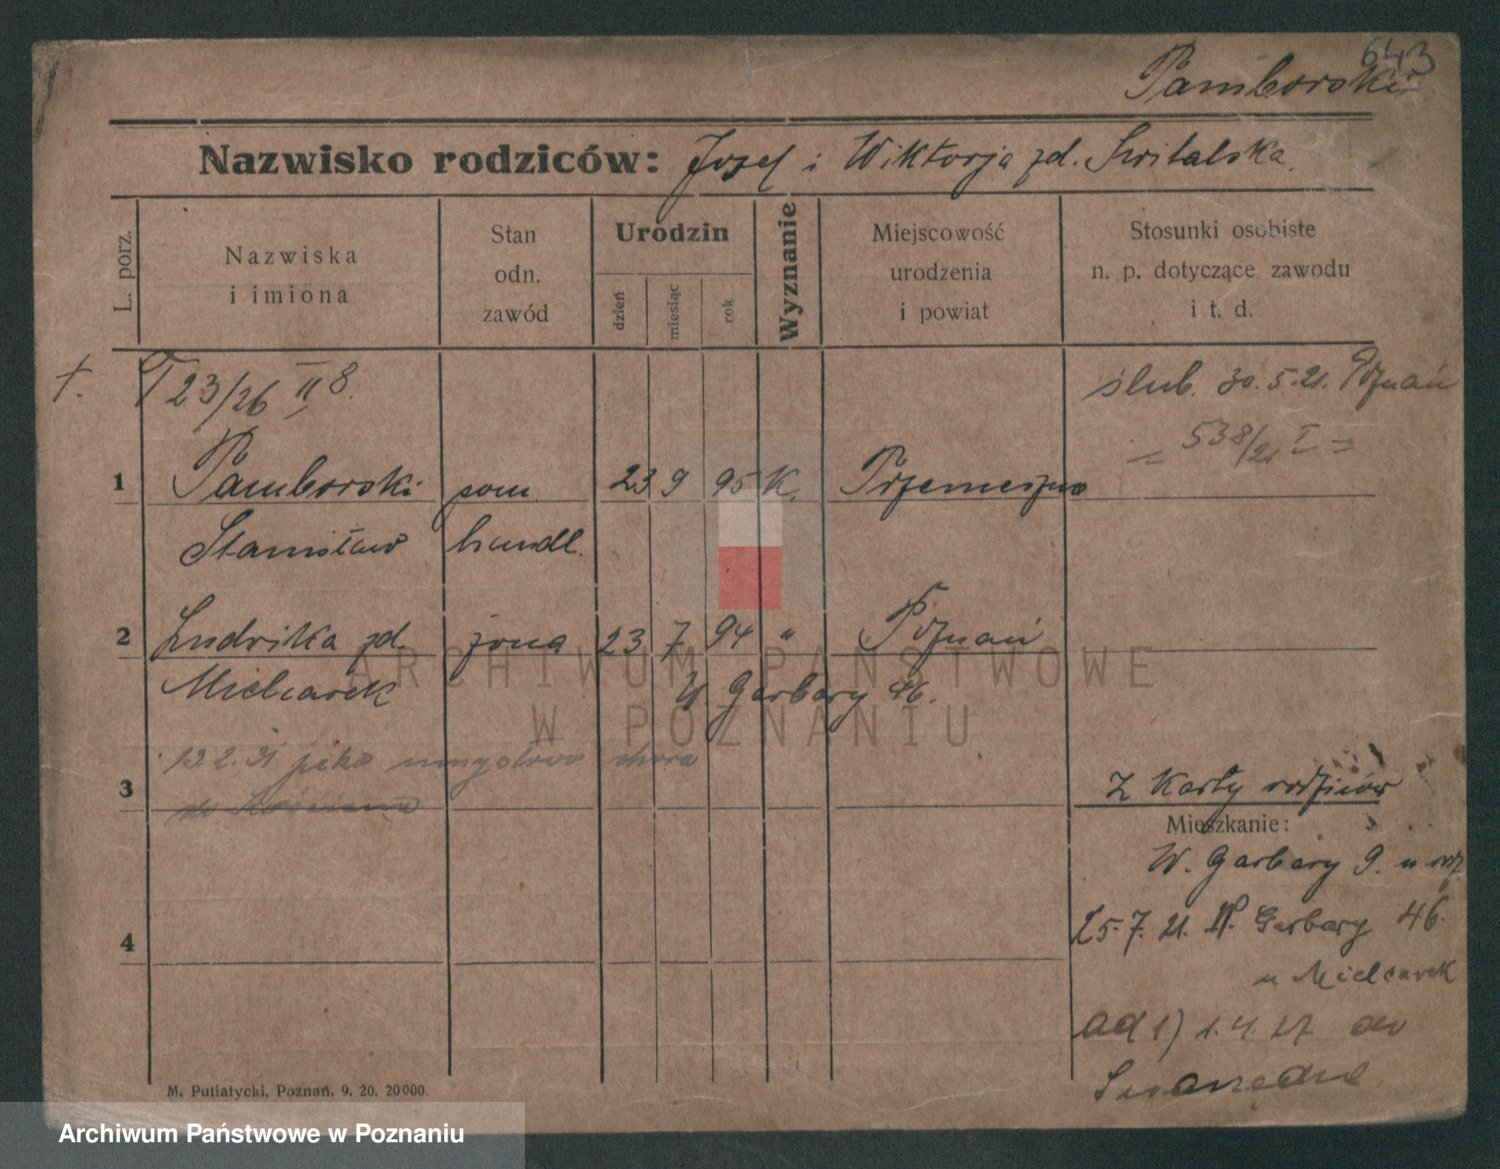 643
Pamborski
Nazwisko rodziców: Józef i Wiktorja zd. Switalska.
L. porz.
Nazwiska
i imiona
Stan
odn.
zawód
Urodzin
dzień
miesiąc
rok
Wyznanie
Miejscowość
urodzenia
i powiat
Stosunki osobiste
n. p. dotyczące zawodu
i t. d.
†. T 23/26 II 8. ślub. 30.5.21. Poznań
= 538/21 I =
1 Pamborski pom. 23 9 95 K.
Stanisław handl.
2 Ludwika zd. żona 23 7 94 " Poznań
Mielcarek W. Garbary 46.
12.2.31 jako umysłowo chora
3 do Kościana
z Karty rodziców
Mieszkanie:
W. Garbary 9. u
25.7.21. W. Garbary 46.
4
u Mielcarek
ad 1) 1.4.27 do
M. Putiatycki, Poznań. 9. 20. 20000.
ARCHIWUM PAŃSTWOWE
W POZNANIU
Archiwum Państwowe w Poznaniu